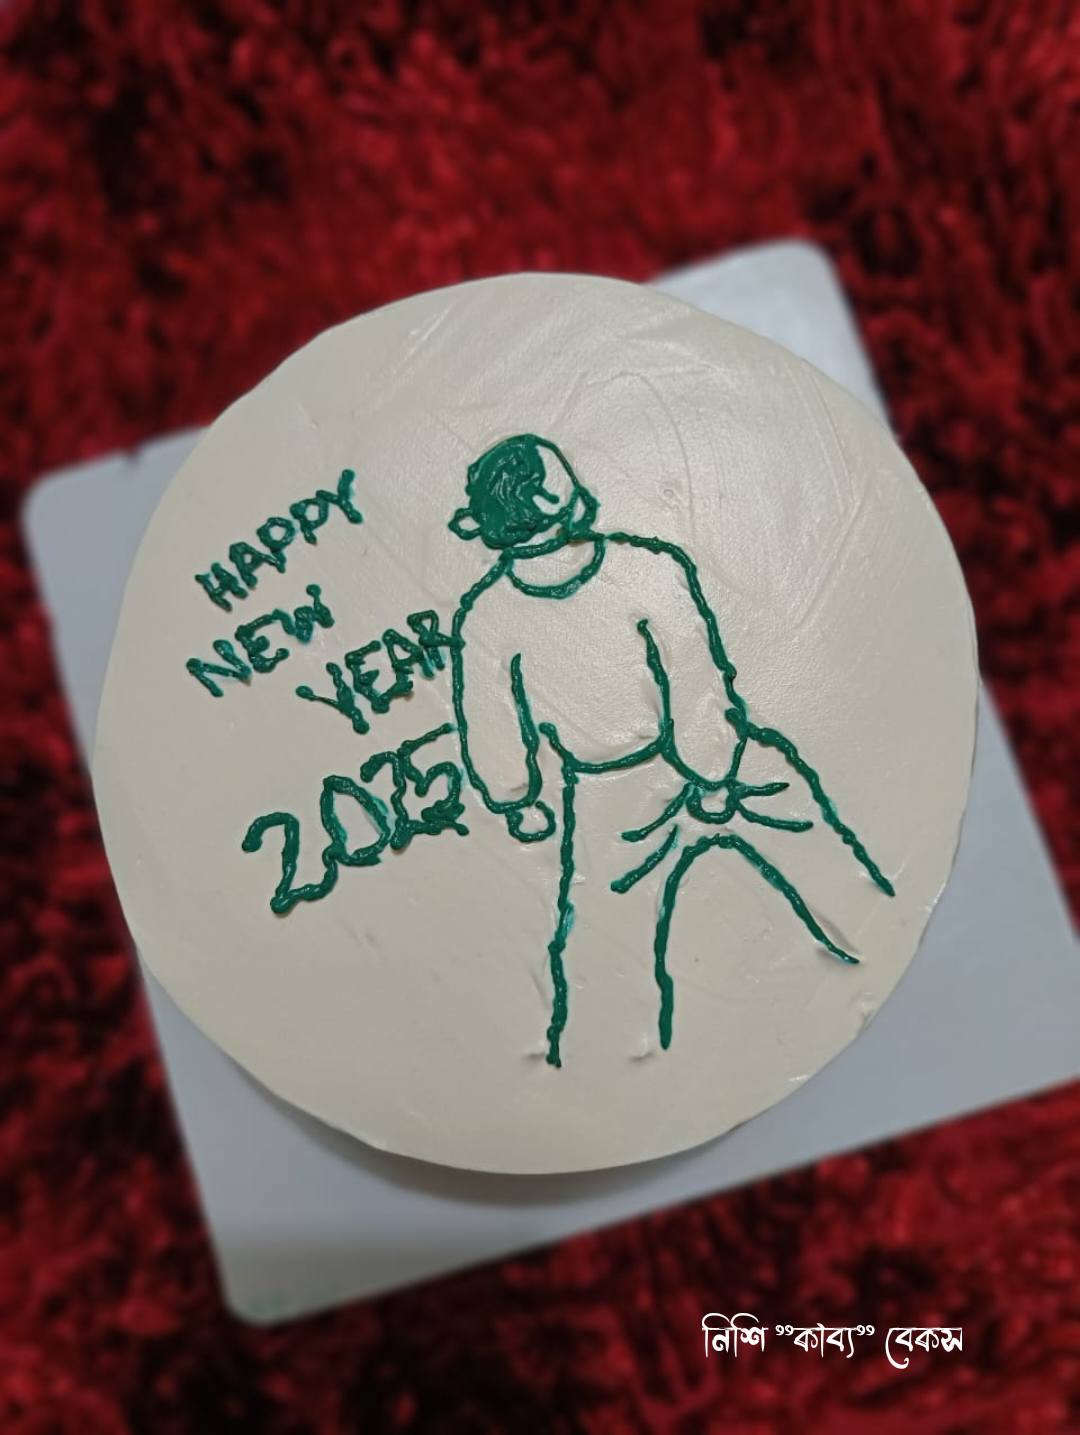 HAPPY
NEW
YEAR
2025
নিশি "কাব্য" বেকস